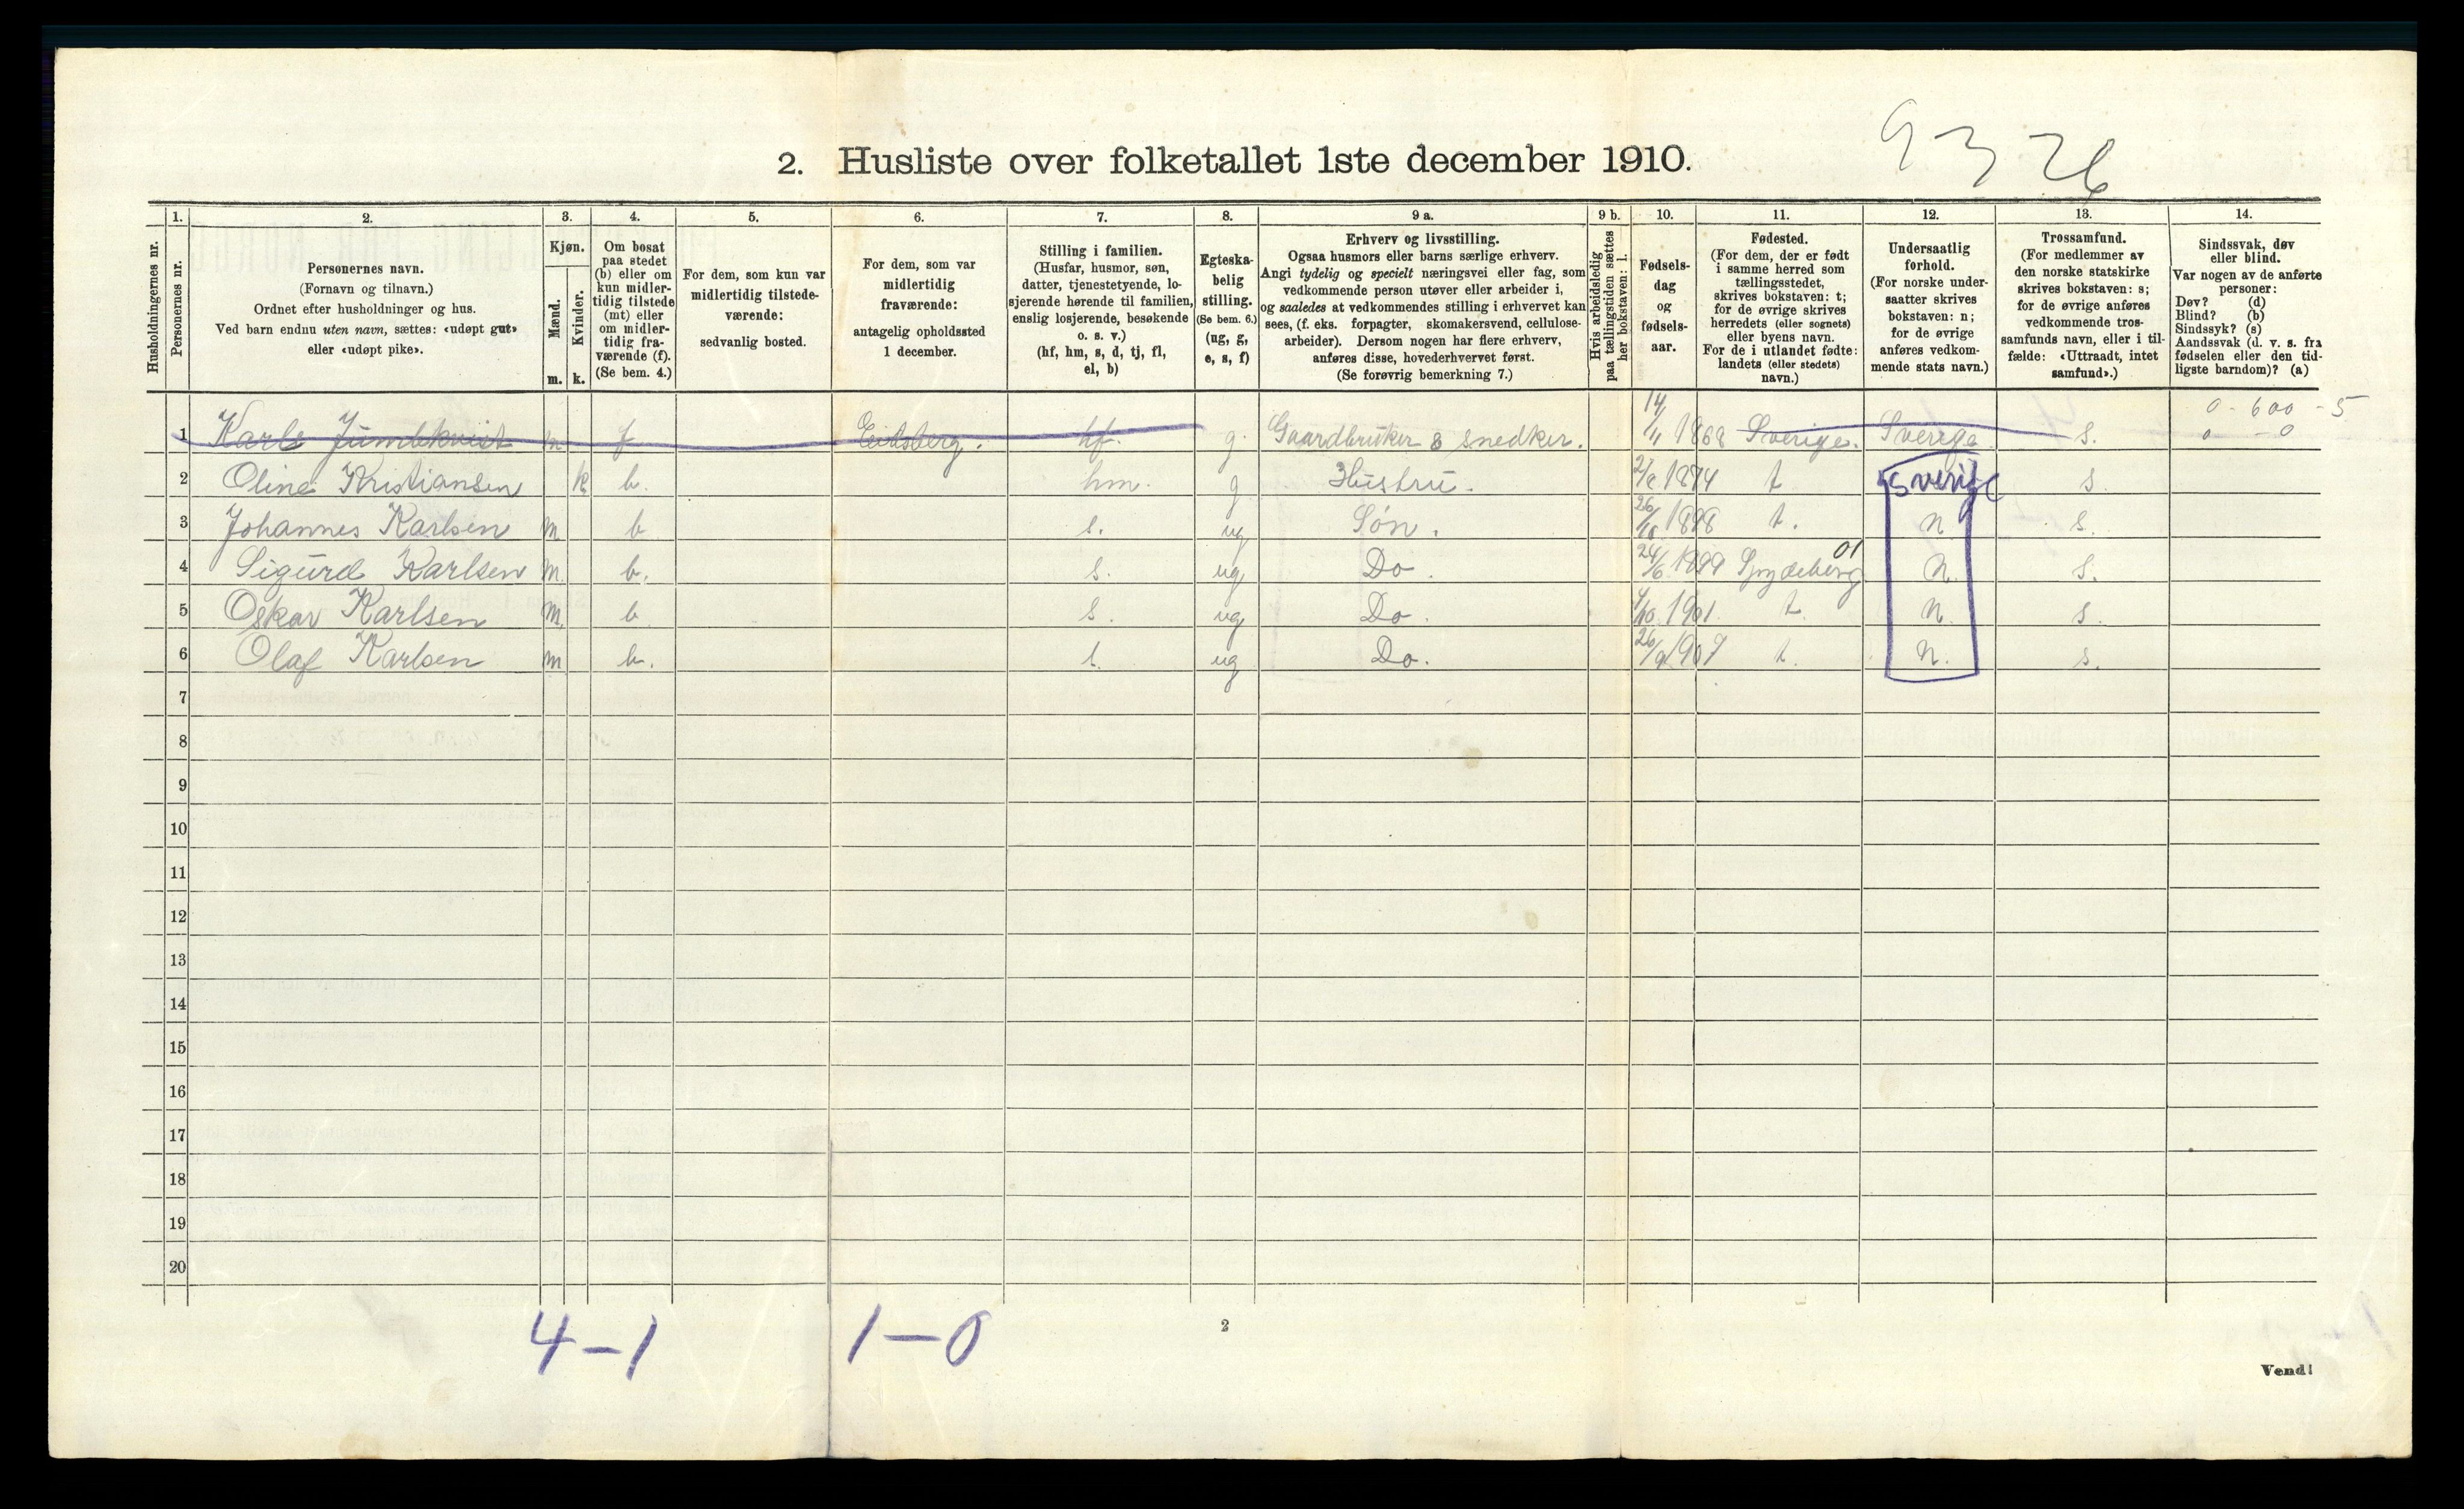 9326
2. Husliste over folketallet 1ste december 1910.
Husholdningernes nr.
1.
Personernes nr.
2.
Personernes navn.
(Fornavn og tilnavn.)
Ordnet efter husholdninger og hus.
Ved barn endnu uten navn, sættes: «udøpt gut»
eller «udøpt pike».
3.
Kjøn.
Mænd.
m.
Kvinder.
k.
4.
Om bosat
paa stedet
(b) eller om
kun midler-
tidig tilstede
(mt) eller
om midler-
tidig fra-
værende (f).
(Se bem. 4.)
5.
For dem, som kun var
midlertidig tilstede-
værende:
sedvanlig bosted.
6.
For dem, som var
midlertidig
fraværende:
antagelig opholdssted
1 december.
7.
Stilling i familien.
(Husfar, husmor, søn,
datter, tjenestetyende, lo-
sjerende hørende til familien,
enslig losjerende, besøkende
o. s. v.)
(hf, hm, s, d, tj, fl,
el, b)
8.
Egteska-
belig
stilling.
(Se bem. 6.)
(ug, g,
e, s, f)
9 a.
Erhverv og livsstilling.
Ogsaa husmors eller barns særlige erhverv.
Angi tydelig og specielt næringsvei eller fag, som
vedkommende person utøver eller arbeider i,
og saaledes at vedkommendes stilling i erhvervet kan
sees, (f. eks. forpagter, skomakersvend, cellulose-
arbeider). Dersom nogen har flere erhverv,
anføres disse, hovederhvervet først.
(Se forøvrig bemerkning 7.)
9 b.
Hvis arbeidsledig
paa tællingstiden sættes
her bokstaven: l.
10.
Fødsels-
dag
og
fødsels-
aar.
11.
Fødested.
(For dem, der er født
i samme herred som
tællingsstedet,
skrives bokstaven: t;
for de øvrige skrives
herredets (eller sognets)
eller byens navn.
For de i utlandet fødte:
landets (eller stedets)
navn.)
12.
Undersaatlig
forhold.
(For norske under-
saatter skrives
bokstaven: n;
for de øvrige
anføres vedkom-
mende stats navn.)
13.
Trossamfund.
(For medlemmer av
den norske statskirke
skrives bokstaven: s;
for de øvrige anføres
vedkommende tros-
samfunds navn, eller i til-
fælde: «Uttraadt, intet
samfund».)
14.
Sindssvak, døv
eller blind.
Var nogen av de anførte
personer:
Døv? (d)
Blind? (b)
Sindssyk? (s)
Aandssvak (d. v. s. fra
fødselen eller den tid-
ligste barndom)? (a)
0 - 600 - 5
0 - 0
1 Karls m f Eidsberg. hf. g. Gaardbruker & snedker. 14/11 1868 Sverige. Sverige s.
2 Oline Kristiansen k b. hm. g Hustru. 1874 t Sverige s.
3 Johannes Karlsen m b s. ug Søn. 1898 t. n s.
4 Sigurd Karlsen m. b. s. ug Do. 24/6 1899 Spydeberg 01 n. s.
5 Oskar Karlsen m. b s. ug Do. 1901. t. n. s.
6 Olaf Karlsen m b. ug Do. 26/9 1907 t. n. s.
7
8
9
10
11
12
13
14
15
16
17
18
19
20
4 - 1 1 - 0
2
Vend!